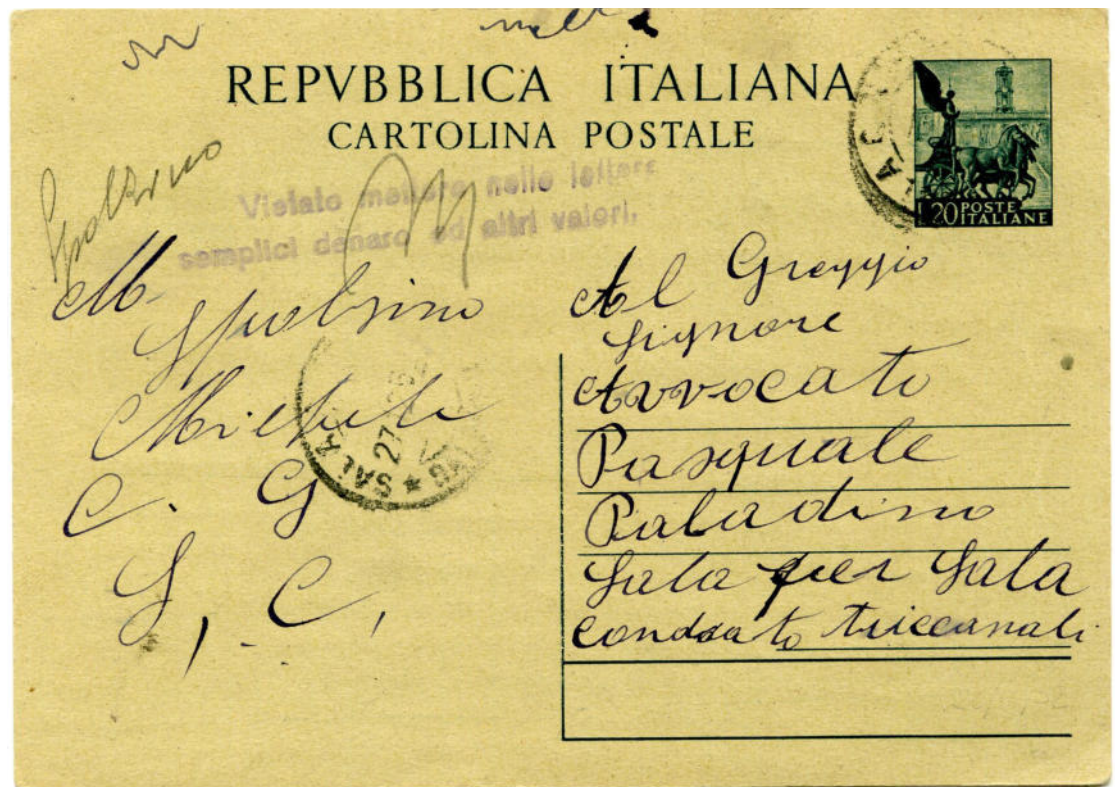 REPVBBLICA ITALIANA
CARTOLINA POSTALE
L.20 POSTE
ITALIANE
Spolzino
Vietato mettere nelle lettere
semplici denaro ed altri valori.
M.
Spolzino
Michele
C. G
S. C.
SALA
27
Al Greggio
Signore
Avvocato
Pasquale
Paladino
Sala per Sala